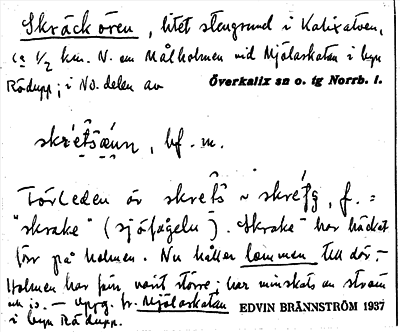 Skräckören, litet stengrund i Kalixälven,
ca 1/2 km. N. om Målholmen vid Mjölaskatan i byn
Rödupp; i NO. delen av Överkalix sn o. tg Norrb. l.
bf. m.
Förleden är f. =
"skrake" (sjöfågeln). Skrake har häckat
förr på holmen. Nu håller lommen till där, –
Holmen har förr varit större; har minskats av ström
o. is. – Uppg. fr. Mjölaskatan EDVIN BRÄNNSTRÖM 1937
i byn Rödupp.